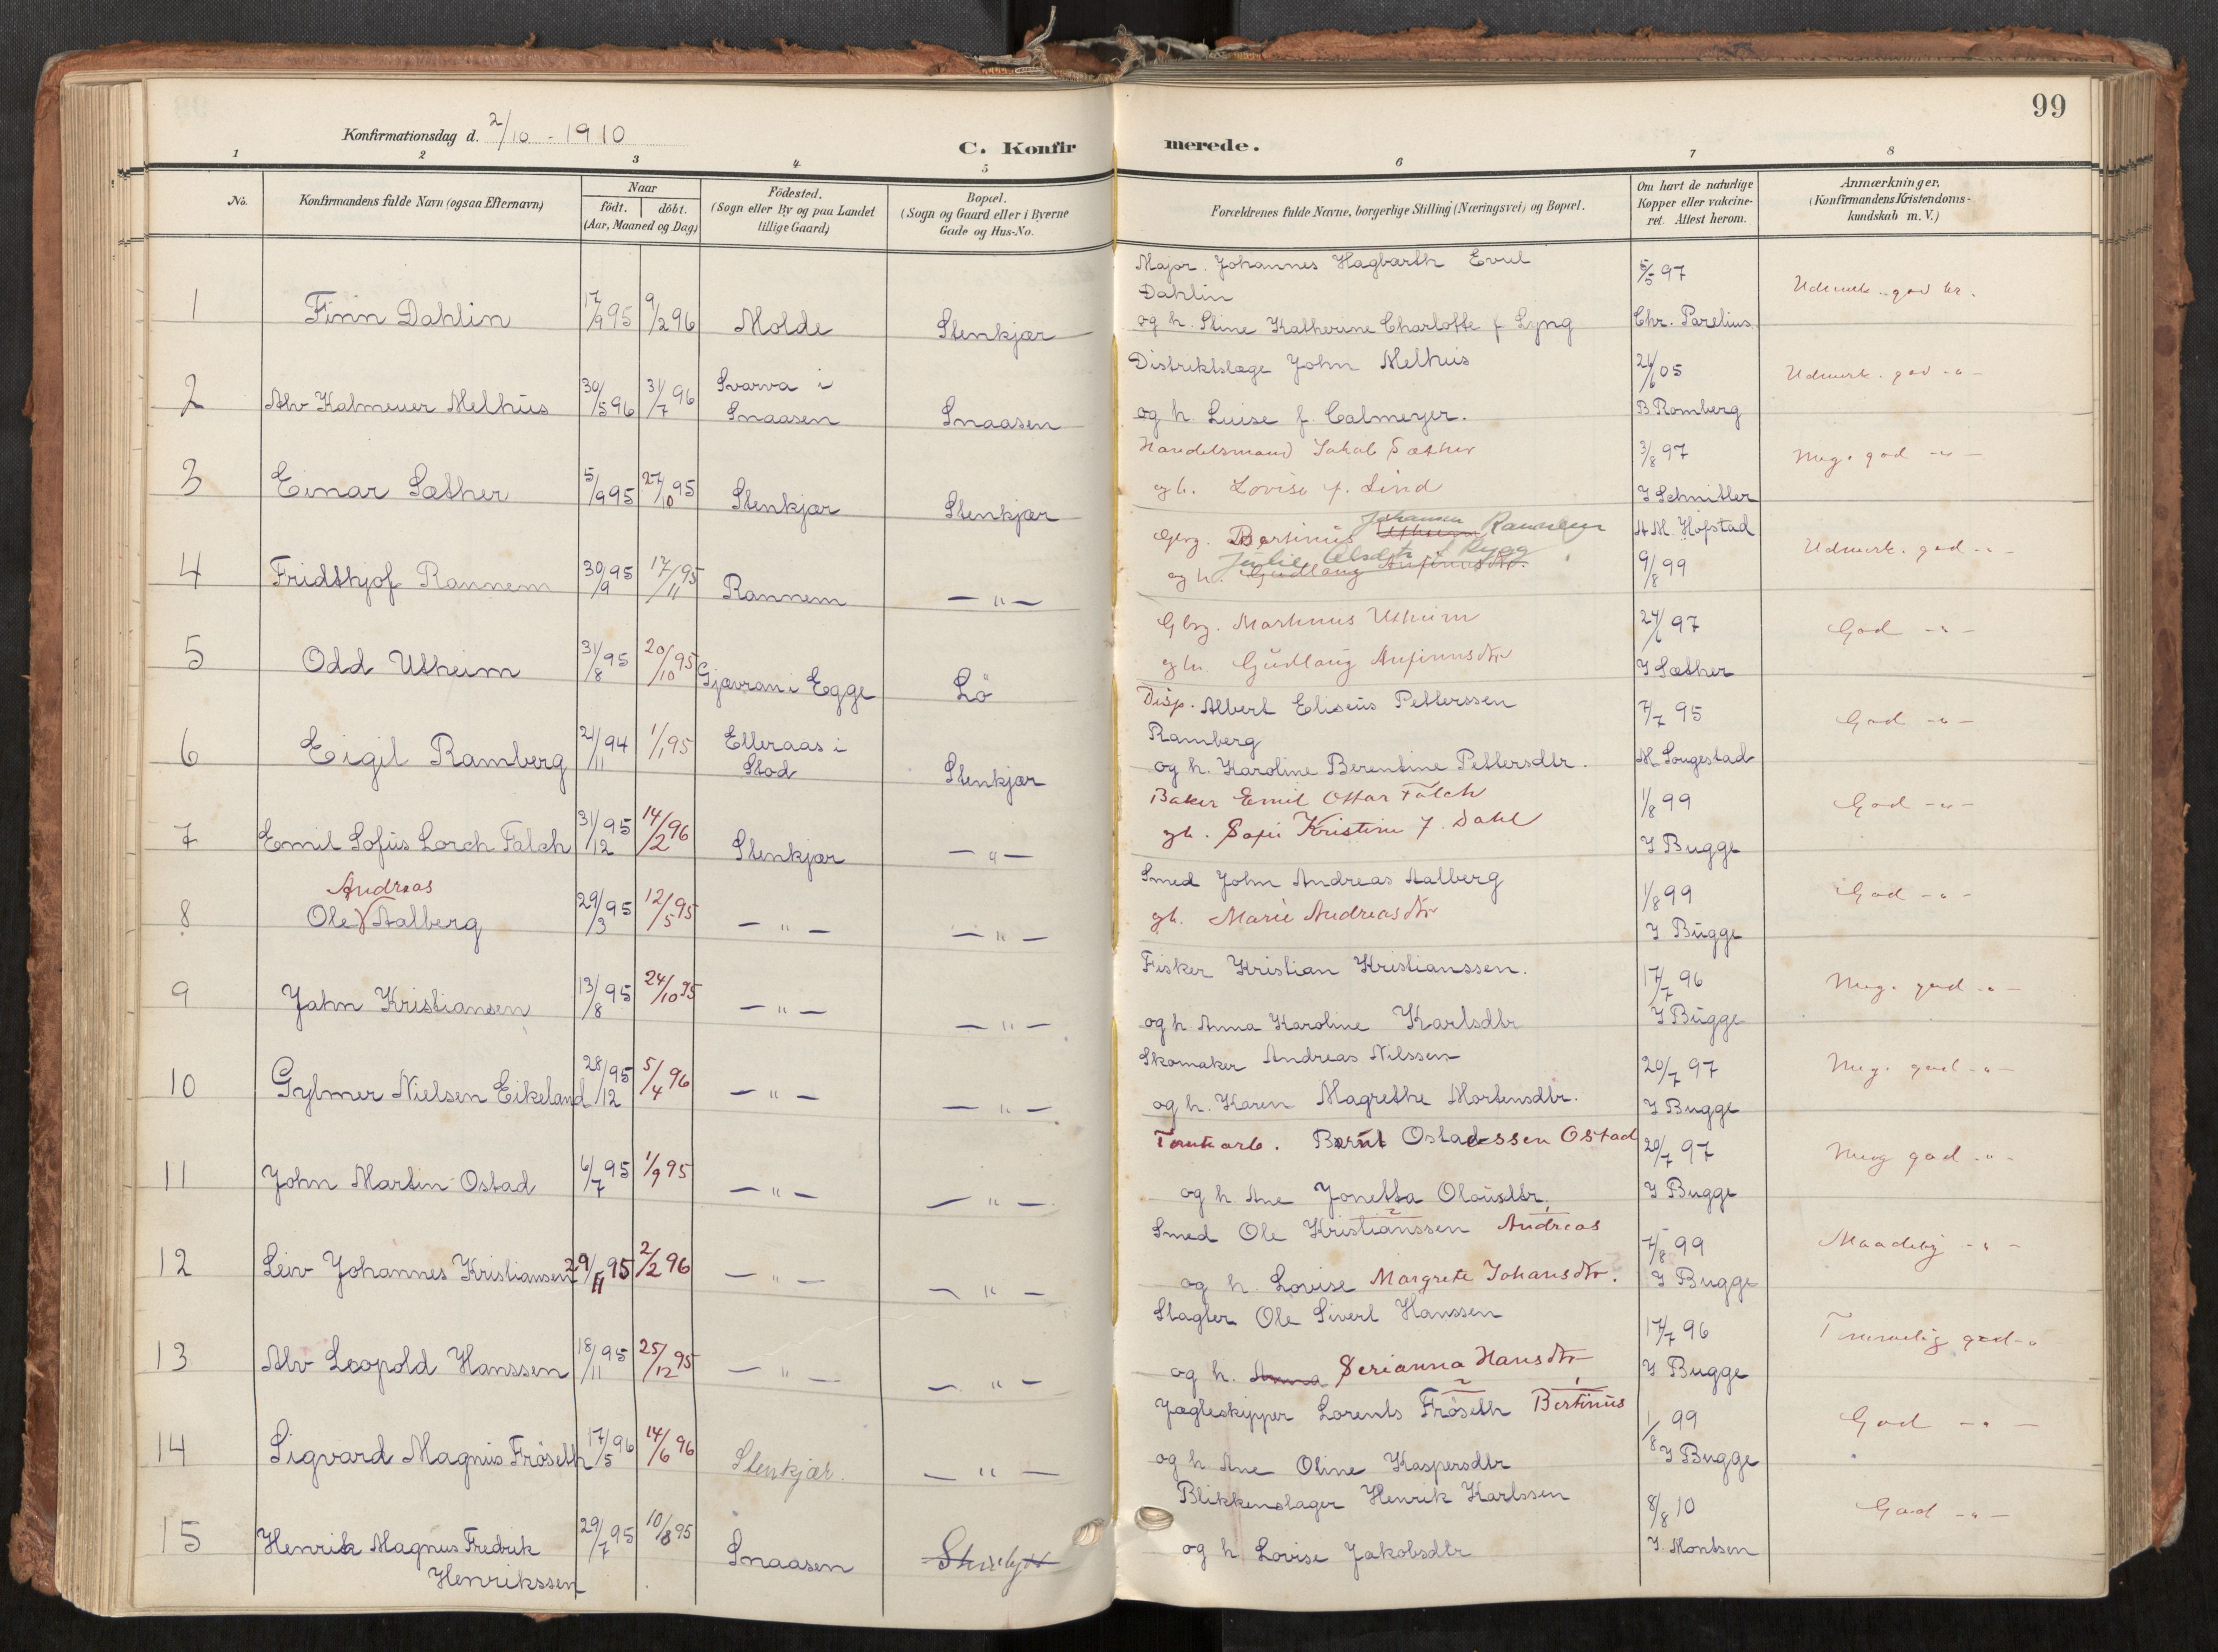 99
Konfirmationsdag d. 2/10 - 1910
C. Konfirmerede.
1 2 3 4 5 6 7 8
No.
Konfirmandens fulde Navn (ogsaa Efternavn)
Naar
födt. döbt.
(Aar, Maaned og Dag)
Födested.
(Sogn eller By og paa Landet
tillige Gaard)
Bopæl.
(Sogn og Gaard eller i Byerne
Gade og Hus-No.
Forældrenes fulde Navne, borgerlige Stilling (Næringsvei) og Bopæl.
Om havt de naturlige
Kopper eller vakcine-
ret. Attest herom.
Anmærkninger.
(Konfirmandens Kristendoms-
kundskab m. V.)
1 Finn Dahlin 17/9 95 9/2 96 Molde Stenkjær
Major. Johannes Hagbarth Evul
Dahlin
og h. Stine Katherine Charlotte f Lyng
5/5 97
Chr. Parelius
Udmerk. god kr.
2 Alv Kalmeuer Melhus 30/5 96 31/7 96 Svarva i
Snaasen Snaasen
Distriktslæge John Melhus
og h. Luise f. Calmeyer.
26/6 05
B Romberg
Udmerk. god -"-
3 Einar Sæther 5/9 95 27/10 95 Stenkjær Stenkjær
Handelsmand Jakob Sæther
og h. Lovise f. Lind
3/8 97
J Schnitler
Meg. god -"-
4 Fridthjof Rannem 30/9 95 17/11 95 Rannem -"-
Gbrg. Bertinus Utheim Johannes Rannem
og h. Gudlaug Anfinnsdtr. Julie Olsdtr f Rygg
H M. Hofstad
9/8 99
Udmerk. god -"-
5 Odd Utheim 31/8 95 20/10 95 Gjævran i Egge Lö
Gbrg. Martinus Utheim
og h. Gudlaug Anfinnsdtr
24/6 97
J Sæther
God -"-
6 Eigil Ramberg 21/11 94 1/1 95 Elleraas i
Stod Stenkjær
Disp. Albert Eliseus Petterssen
Ramberg
og h. Karoline Berentine Pettersdtr.
7/7 95
M. Sougestad
God -"-
7 Emil Sofus Lorch Falch 31/12 95 14/2 96 Stenkjær -"-
Baker Emil Ottar Falch
og h. Sofie Kristine f. Dahl
1/8 99
J Bugge
God -"-
Andreas
8 Ole Aalberg 29/3 95 12/5 95 -"- -"-
Smed John Andreas Aalberg
og h. Marie Andreasdtr
1/8 99
J Bugge
God -"-
9 John Kristiansen 13/8 95 24/10 95 -"- -"-
Fisker Kristian Kristianssen.
og h. Anna Karoline Karlsdtr
17/7 96
J Bugge
Meg. god -"-
10 Gylmer Nielsen Eikeland 28/12 95 5/4 96 -"- -"-
Skomaker Andreas Nilssen
og h. Karen Magrethe Mortensdtr.
20/7 97
J Bugge
Meg. god -"-
11 John Martin Ostad 6/7 95 1/9 95 -"- -"-
Tomtearb. Bernt Ostadssen Ostad
og h. Ane Jonetta Olausdtr.
20/7 97
J Bugge
Meg god -"-
12 Leiv Johannes Kristiansen 29/11 95 2/2 96 -"- -"-
Smed Ole Kristianssen Andreas
og h. Lovise Margrete Johansdtr.
7/8 99
J Bugge
Maadelig -"-
13 Alv Leopold Hanssen 18/11 95 25/12 95 -"- -"-
Slagter Ole Sivert Hanssen
og h. Anna Serianna Hansdtr
17/7 96
J Bugge
Temmelig god -"-
14 Sigvard Magnus Fröseth 17/5 96 14/6 96 Stenkjær. -"-
Jægteskipper Lorents Fröseth Bertinus
og h Ane Oline Kaspersdtr
1/8 99
J Bugge
God -"-
15 Henrik Magnus Fredrik
Henrikssen 29/7 95 10/8 95 Snaasen
Blikkenslager Henrik Karlssen
og h Lovise Jakobsdtr
8/8 10
J. Montsen
God -"-